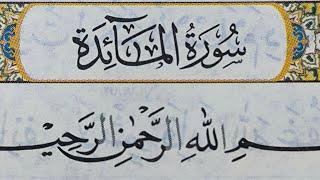 سُورَةُ المَائِدَة
مِ اللَّهِ الرَّحْمَٰنِ الرَّحِي